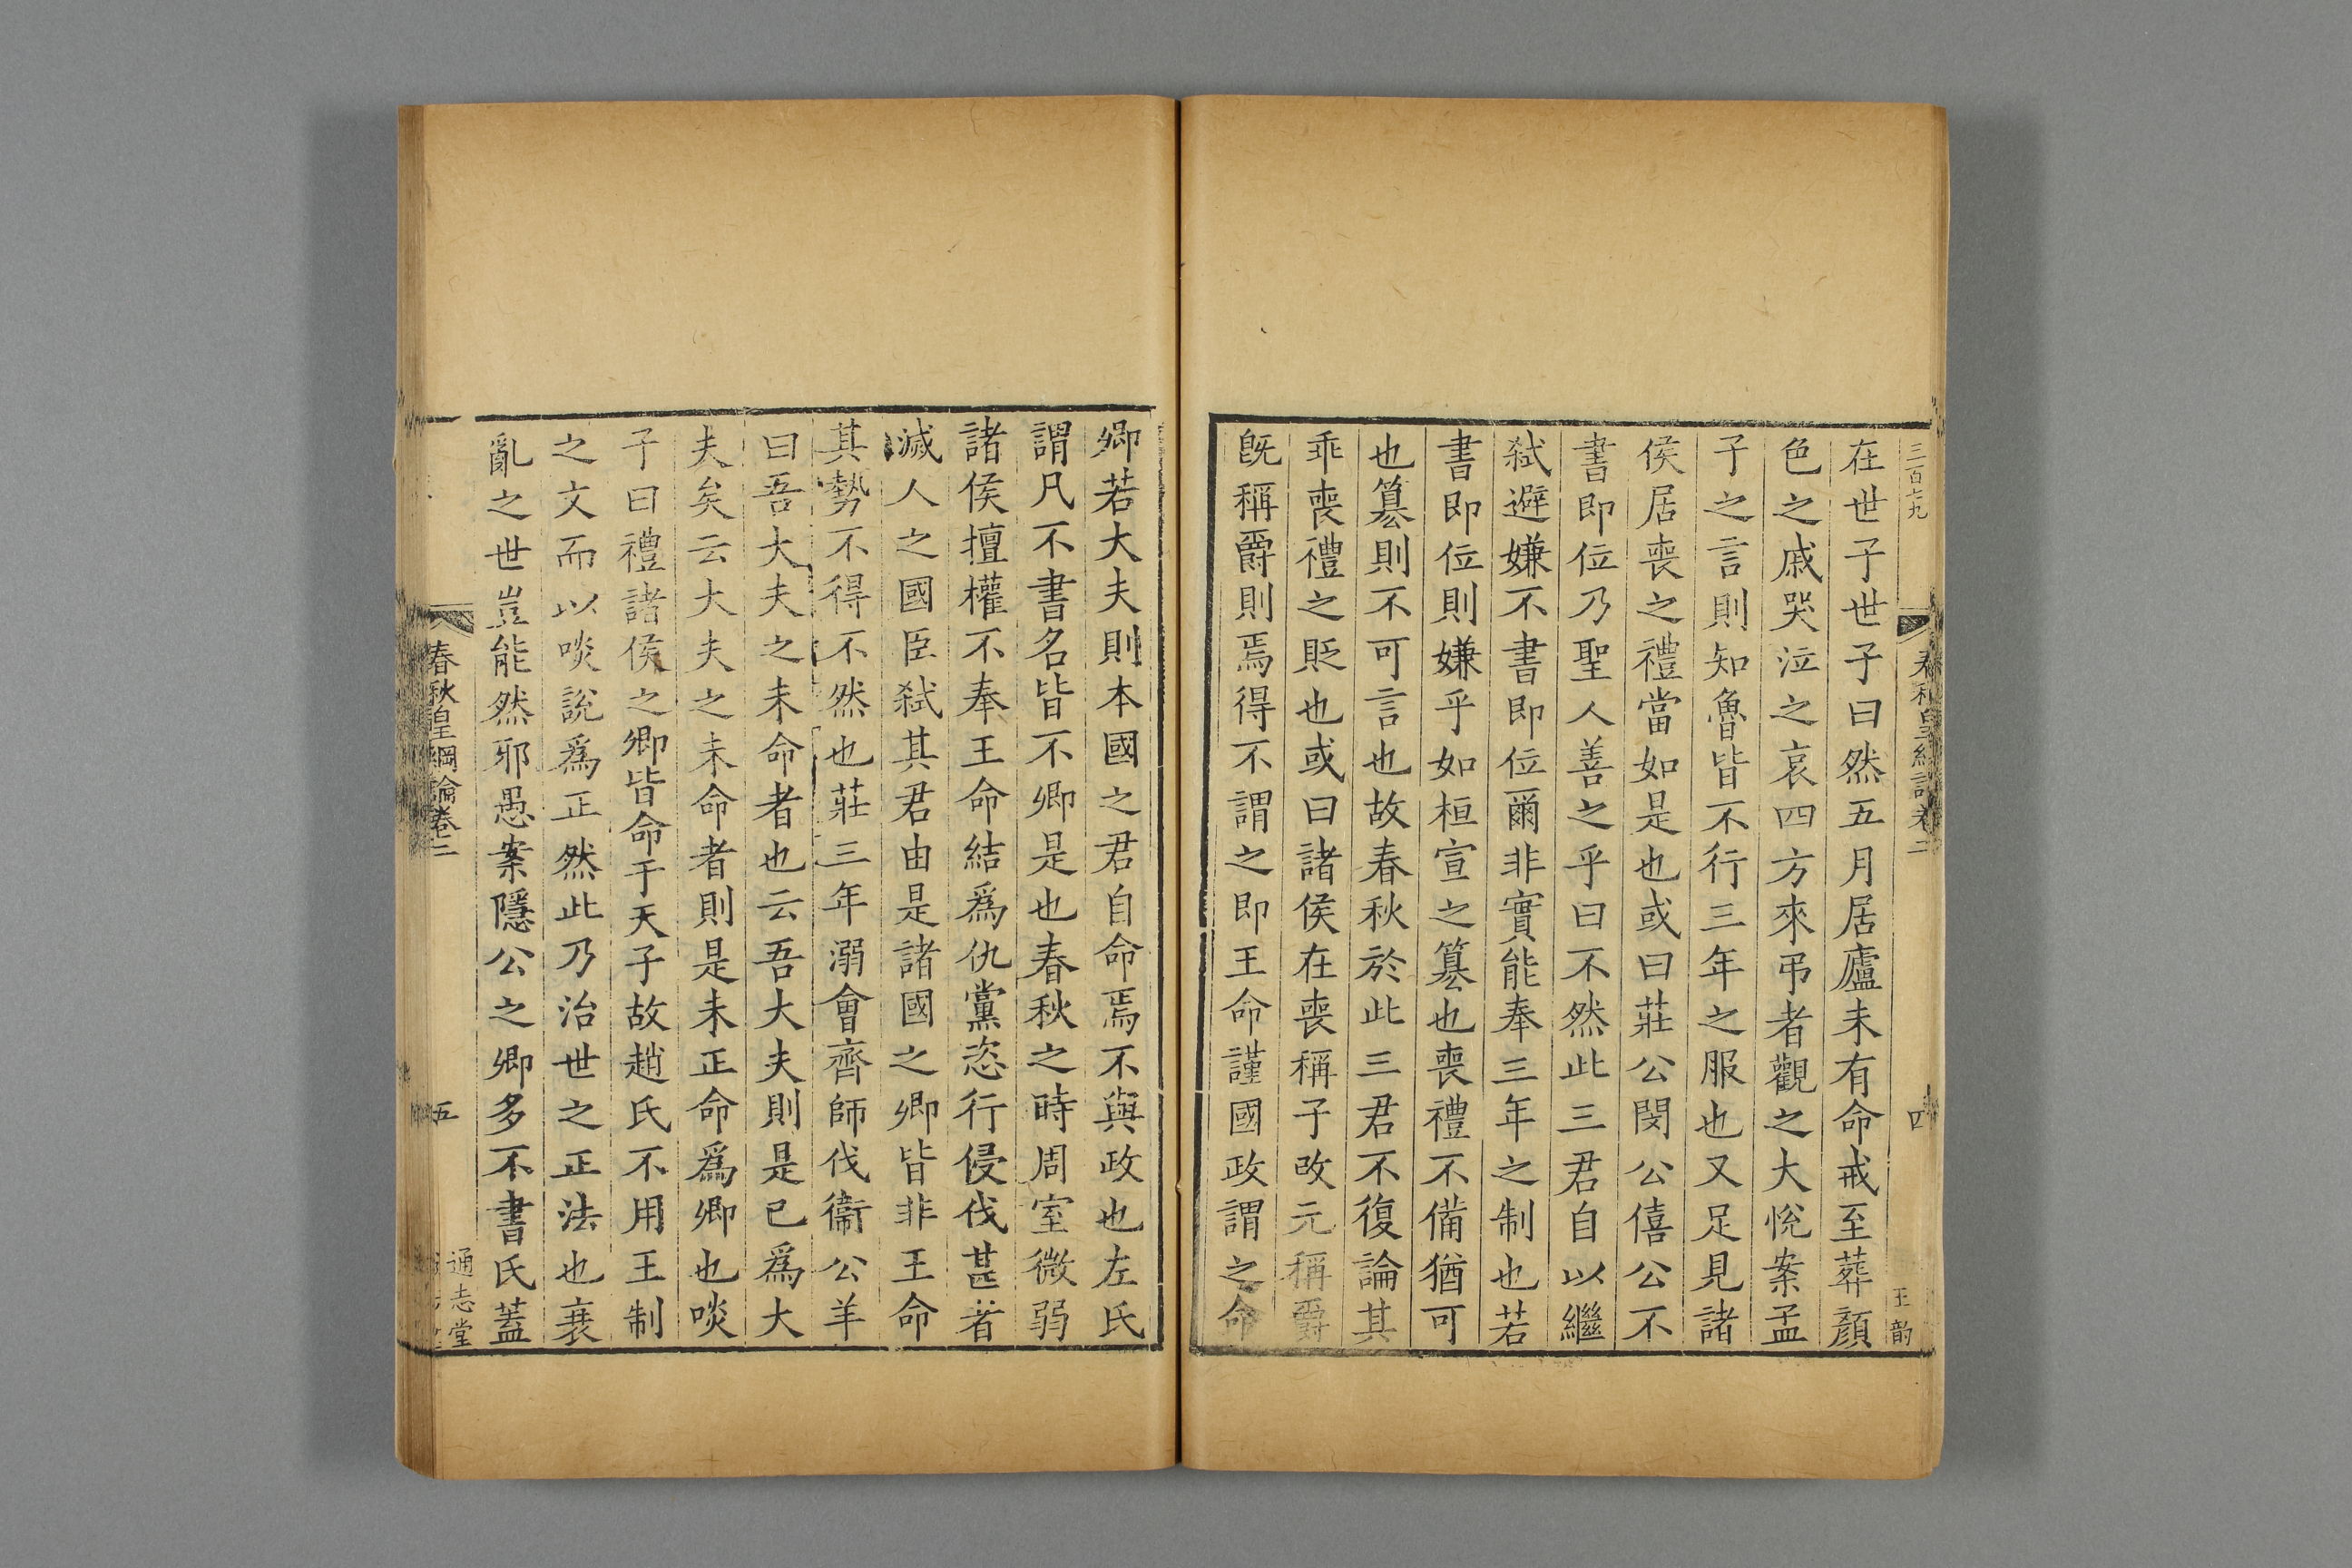 三百七九
春秋皇綱論卷二
四
王韵
在世子世子曰然五月居廬未有命戒至葬顏
色之戚哭泣之哀四方來弔者觀之大悅案孟
子之言則知魯皆不行三年之服也又足見諸
侯居喪之禮當如是也或曰莊公閔公僖公不
書即位乃聖人善之乎曰不然此三君自以繼
弑避嫌不書即位爾非實能奉三年之制也若
書即位則嫌乎如桓宣之篡也喪禮不備猶可
也篡則不可言也故春秋於此三君不復論其
乖喪禮之貶也或曰諸侯在喪稱子改元稱爵
旣稱爵則焉得不謂之即王命謹國政謂之命
卿若大夫則本國之君自命焉不與政也左氏
謂凡不書名皆不卿是也春秋之時周室微弱
諸侯擅權不奉王命結爲仇黨恣行侵伐甚者
滅人之國臣弑其君由是諸國之卿皆非王命
其勢不得不然也莊三年溺會齊師伐衞公羊
曰吾大夫之未命者也云吾大夫則是已爲大
夫矣云大夫之未命者則是未正命爲卿也啖
子曰禮諸侯之卿皆命于天子故趙氏不用王制
之文而以啖說爲正然此乃治世之正法也衰
亂之世豈能然邪愚案隱公之卿多不書氏蓋
春秋皇綱論卷二
五
通志堂